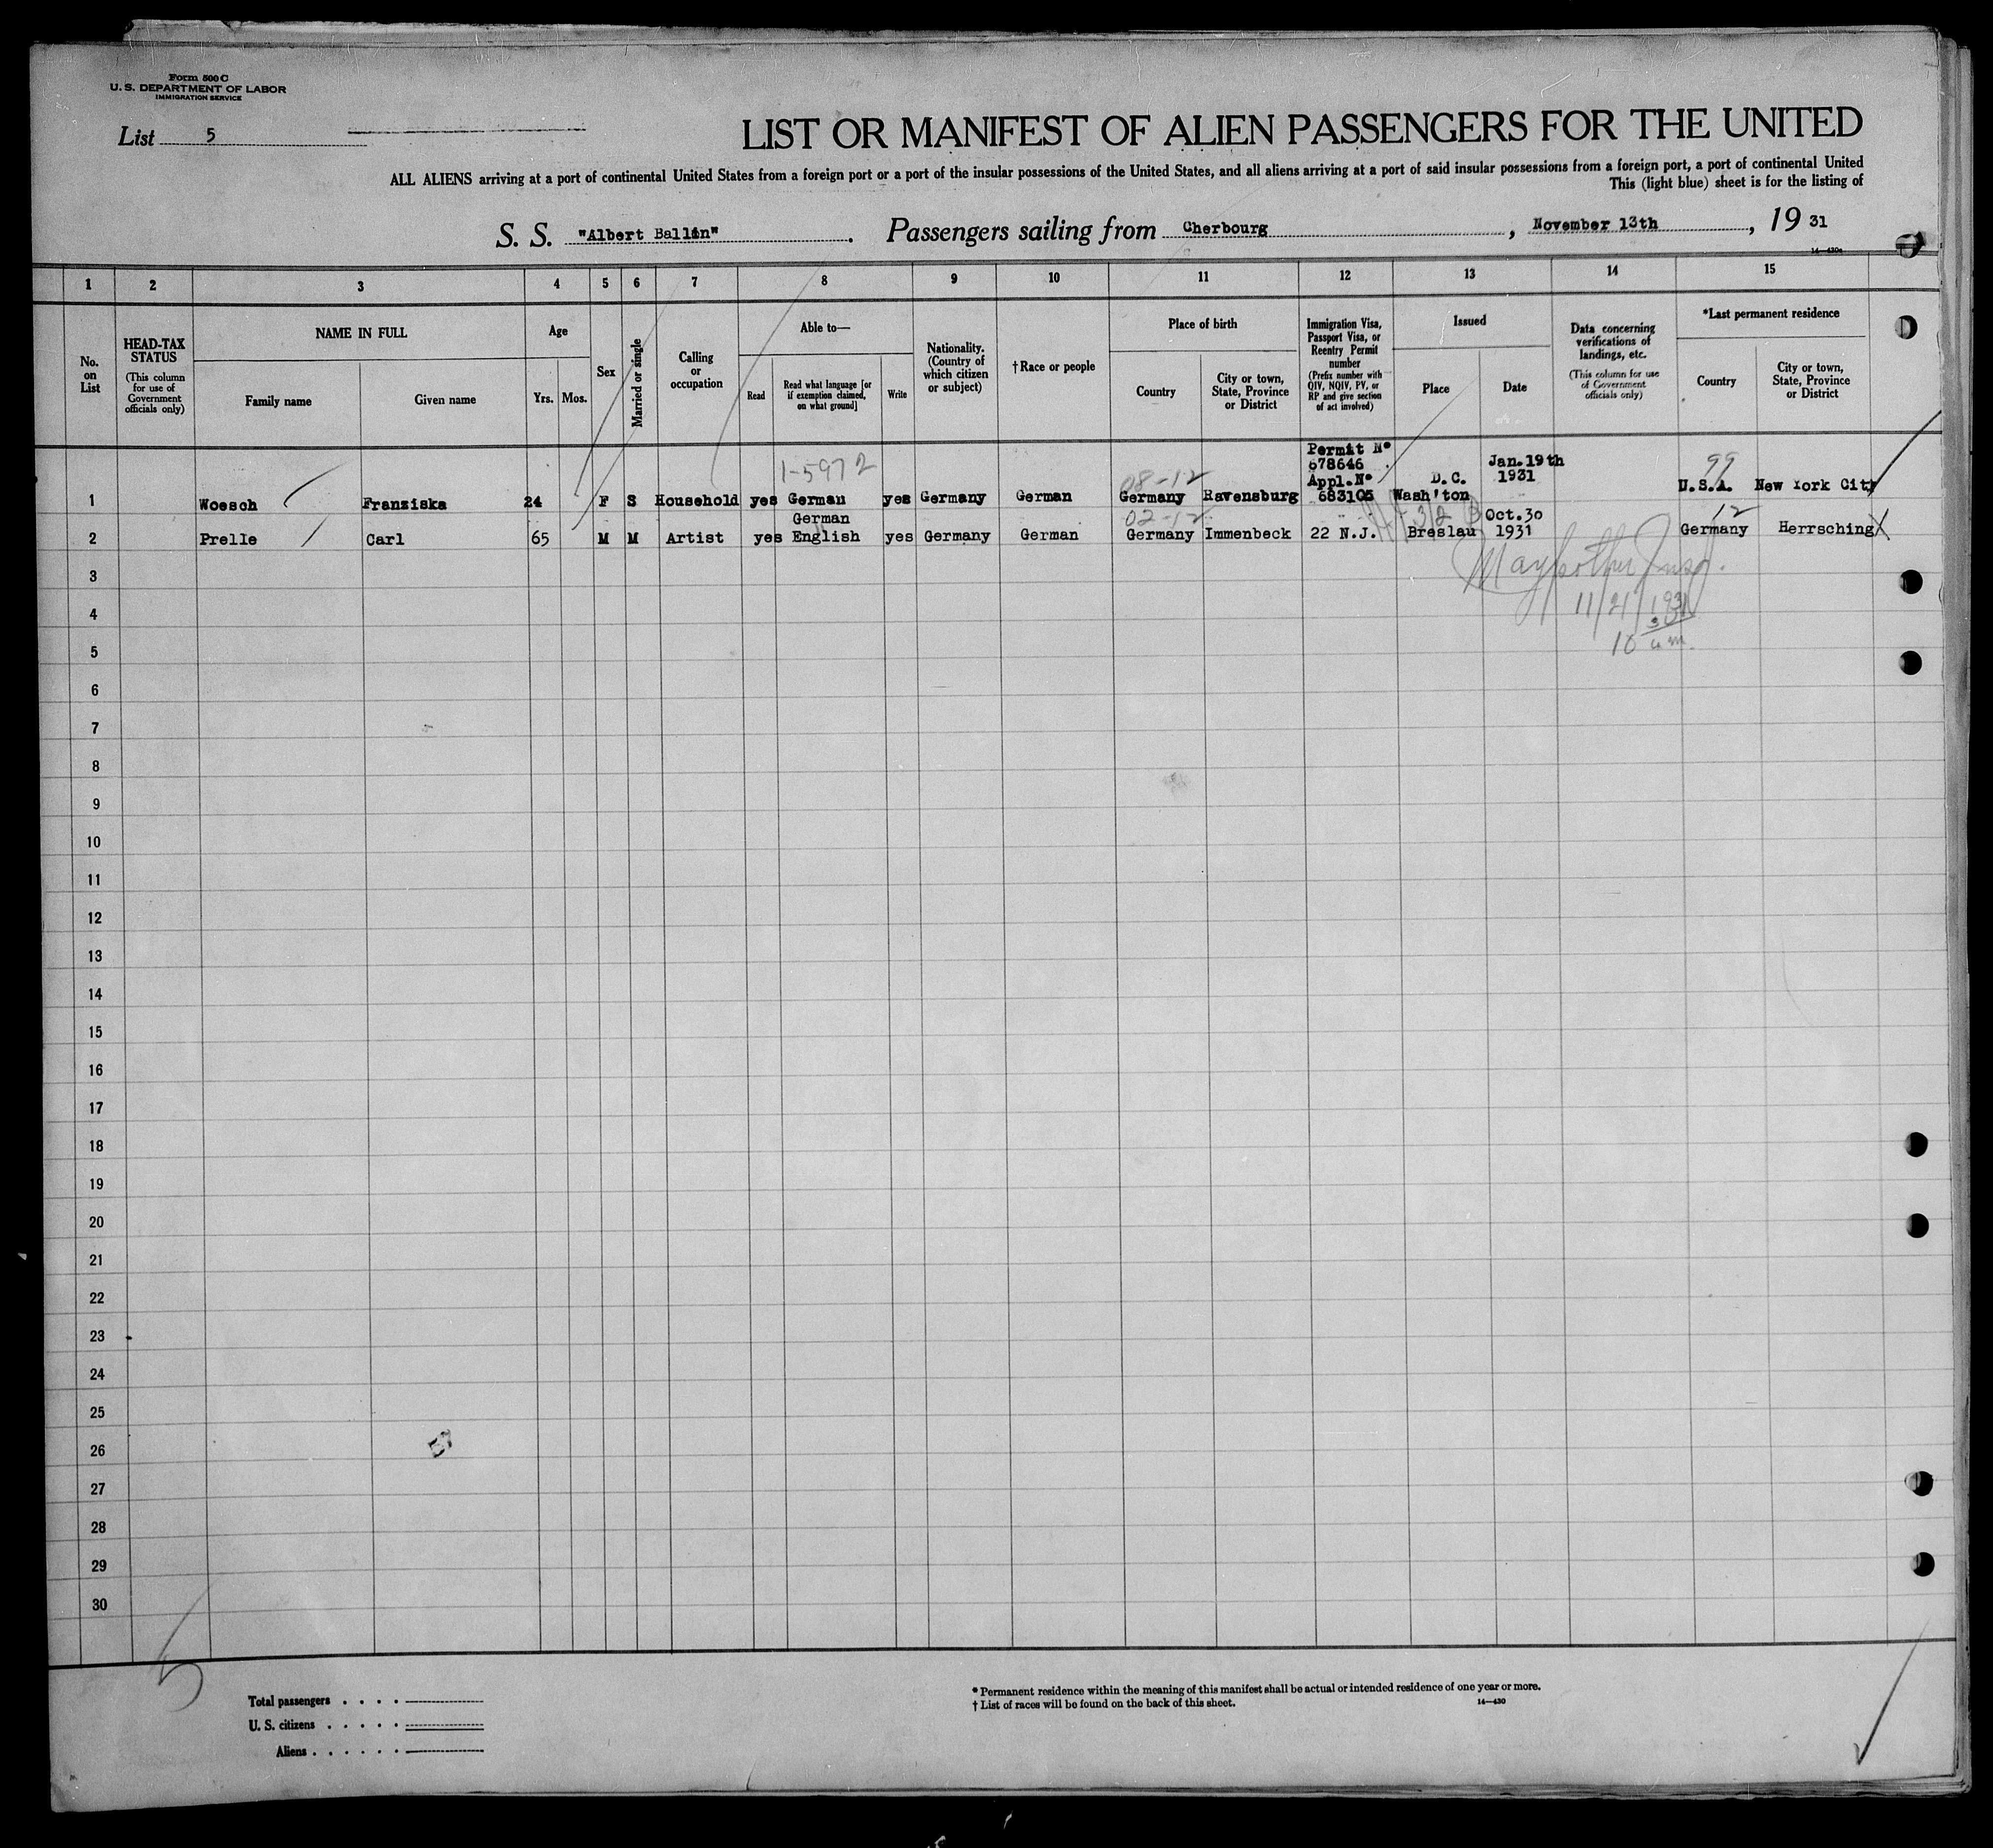 Form 500 C
U. S. DEPARTMENT OF LABOR
IMMIGRATION SERVICE
List 5
LIST OR MANIFEST OF ALIEN PASSENGERS FOR THE UNITED
ALL ALIENS arriving at a port of continental United States from a foreign port or a port of the insular possessions of the United States, and all aliens arriving at a port of said insular possessions from a foreign port, a port of continental United
This (light blue) sheet is for the listing of
S. S. "Albert Ballin". Passengers sailing from Cherbourg, November 13th, 19 31
1 2 3 4 5 6 7 8 9 10 11 12 13 14 15
No. on List
HEAD-TAX STATUS
(This column for use of Government officials only)
NAME IN FULL
Family name
Given name
Age
Yrs. Mos.
Sex
Married or single
Calling or occupation
Able to—
Read
Read what language [or if exemption claimed, on what ground]
Write
Nationality. (Country of which citizen or subject)
†Race or people
Place of birth
Country
City or town, State, Province or District
Immigration Visa, Passport Visa, or Reentry Permit number
(Prefix number with QIV, NQIV, PV, or RP and give section of act involved)
Issued
Place
Date
Data concerning verifications of landings, etc.
(This column for use of Government officials only)
*Last permanent residence
Country
City or town, State, Province or District
1-5972
08-12
Permit No
678646
Appl.No
Jan.19th
1931
D.C.
99
1 Woesch Franziska 24 F S Household yes German yes Germany German Germany Ravensburg 683105 Wash'ton U.S.A. New York City
German
02-12
Oct.30
12
2 Prelle Carl 65 M M Artist yes English yes Germany German Germany Immenbeck 22 N.J. Breslau 1931 Germany Herrsching
3
11/21/1931
4
10 a m.
5
6
7
8
9
10
11
12
13
14
15
16
17
18
19
20
21
22
23
24
25
26
27
28
29
30
5
Total passengers
U. S. citizens
Aliens
* Permanent residence within the meaning of this manifest shall be actual or intended residence of one year or more.
† List of races will be found on the back of this sheet.
14—430